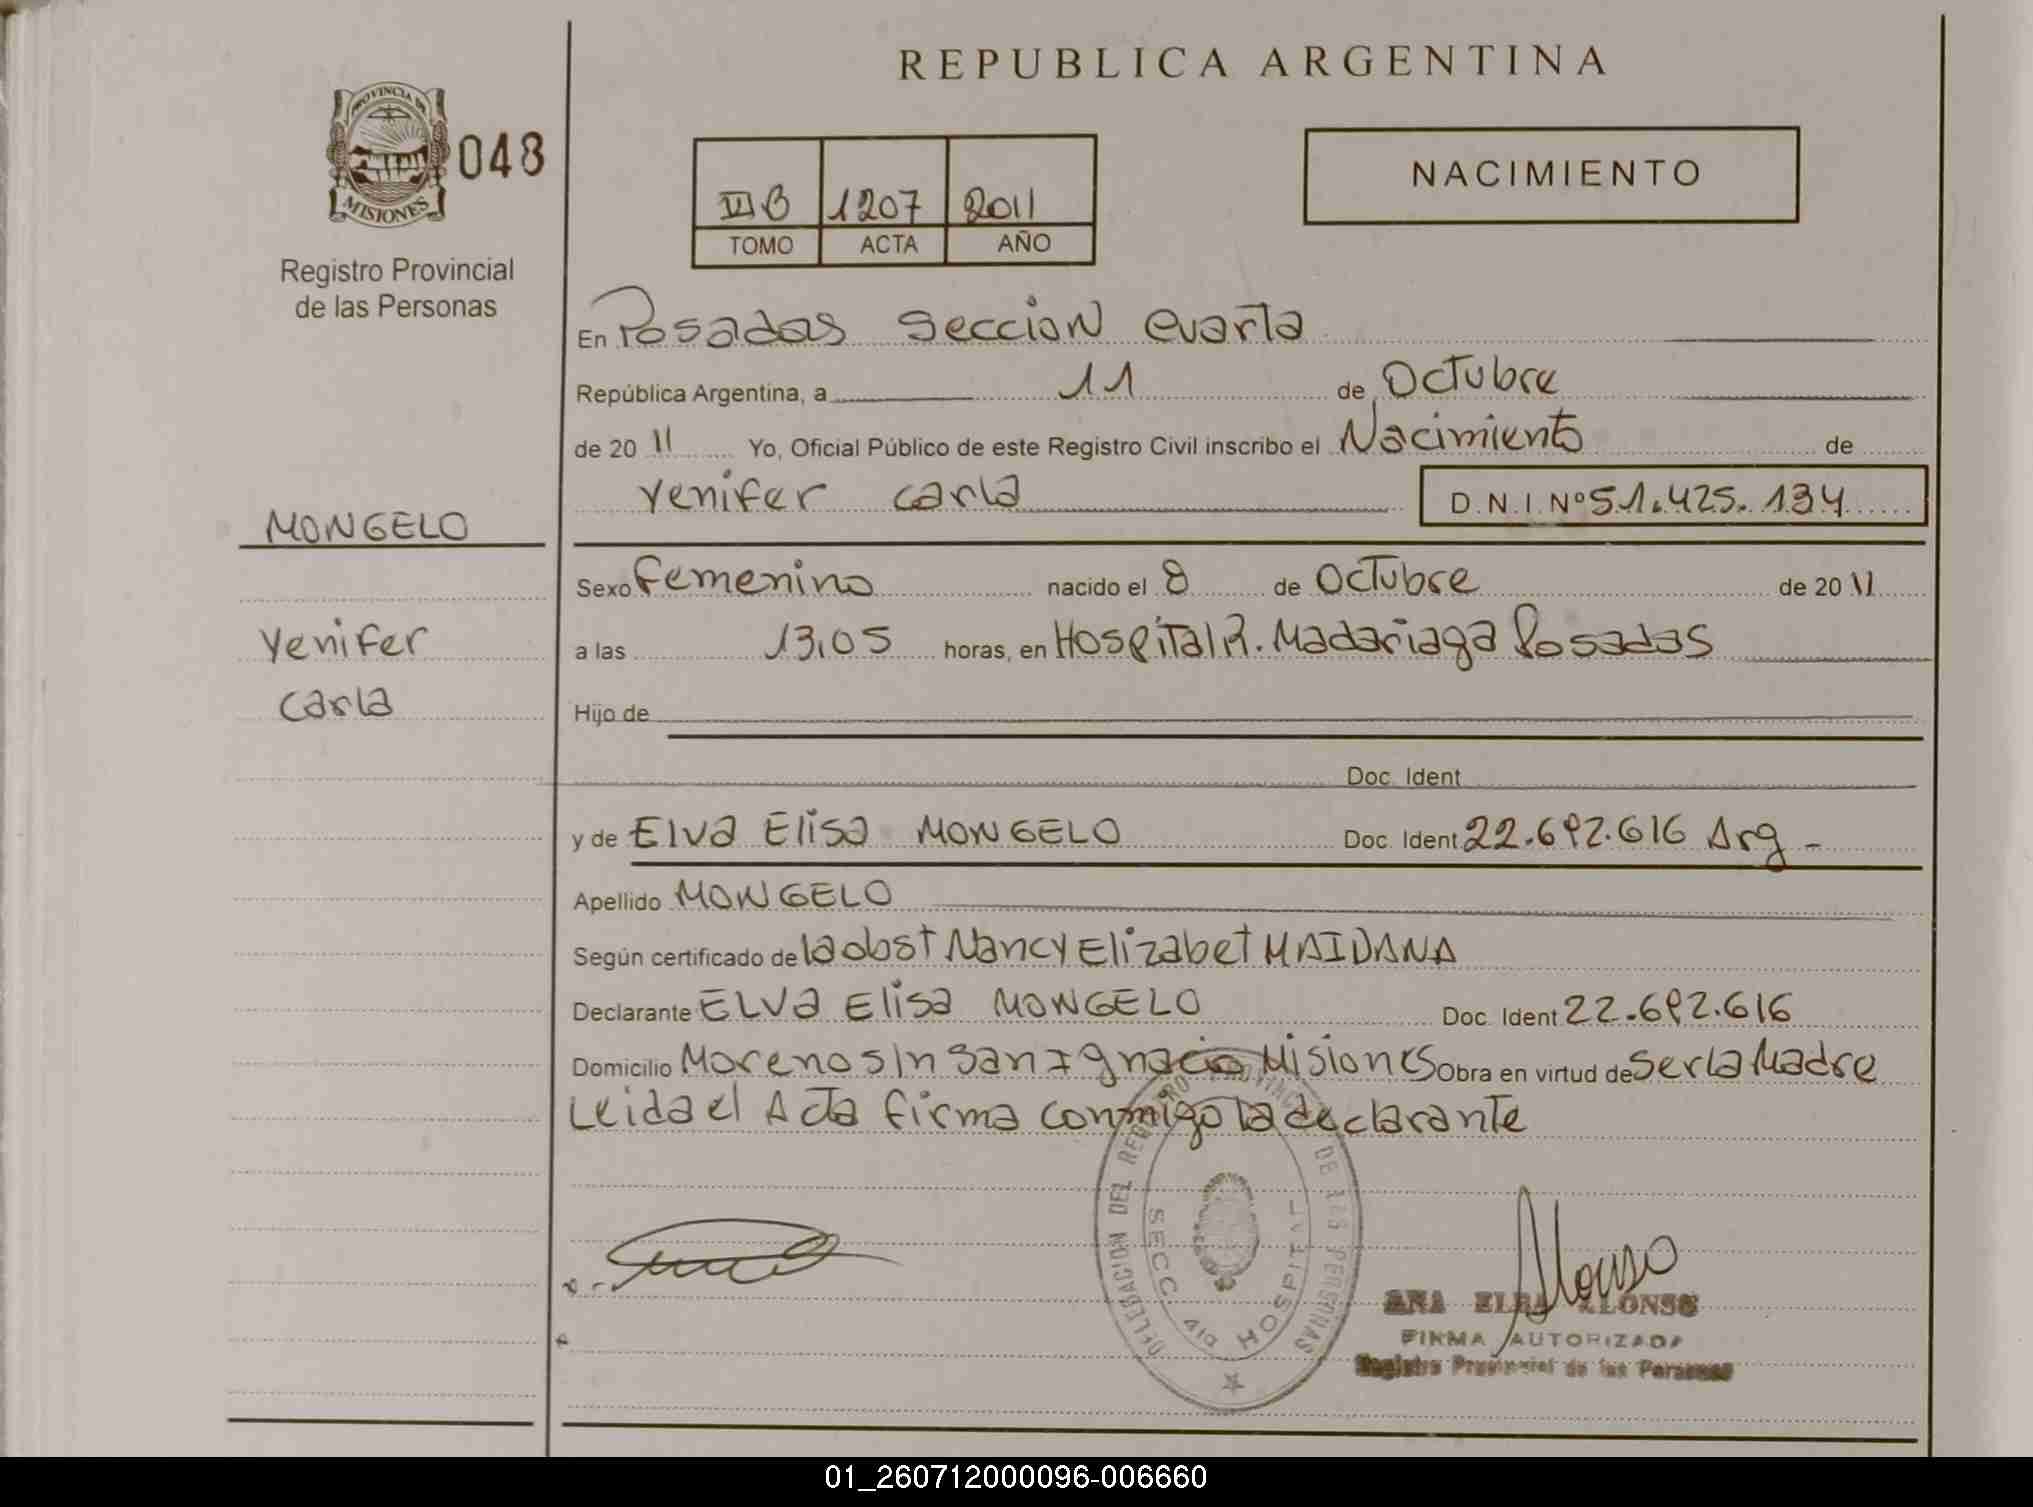 REPUBLICA ARGENTINA
PROVINCIA DE
MISIONES
048
Registro Provincial
de las Personas
VI B 1207 2011
TOMO ACTA AÑO
NACIMIENTO
En Posadas Seccion Cuarta
República Argentina, a 11 de Octubre
de 20 11 Yo, Oficial Público de este Registro Civil inscribo el Nacimiento de
Yenifer Carla D.N.I. Nº 51.425.134
MONGELO
Sexo Femenino nacido el 8 de Octubre de 20 11
Yenifer
a las 13,05 horas, en Hospital R. Madariaga Posadas
Carla
Hijo de
Doc. Ident
y de Elva Elisa MONGELO Doc. Ident 22.692.616 Arg -
Apellido MONGELO
Según certificado de la obst Nancy Elizabet MAIDANA
Declarante ELVA Elisa MONGELO Doc. Ident 22.692.616
Domicilio Moreno s/n San Ignacio Misiones Obra en virtud de ser la Madre
Leida el Acta firma conmigo la declarante
DELEGACION DEL REGISTRO PROVINCIAL DE LAS PERSONAS
SECC 4ta HOSPITAL
Alonso
ANA ELBA ALONSO
FIRMA AUTORIZADA
Registro Provincial de las Personas
01_260712000096-006660